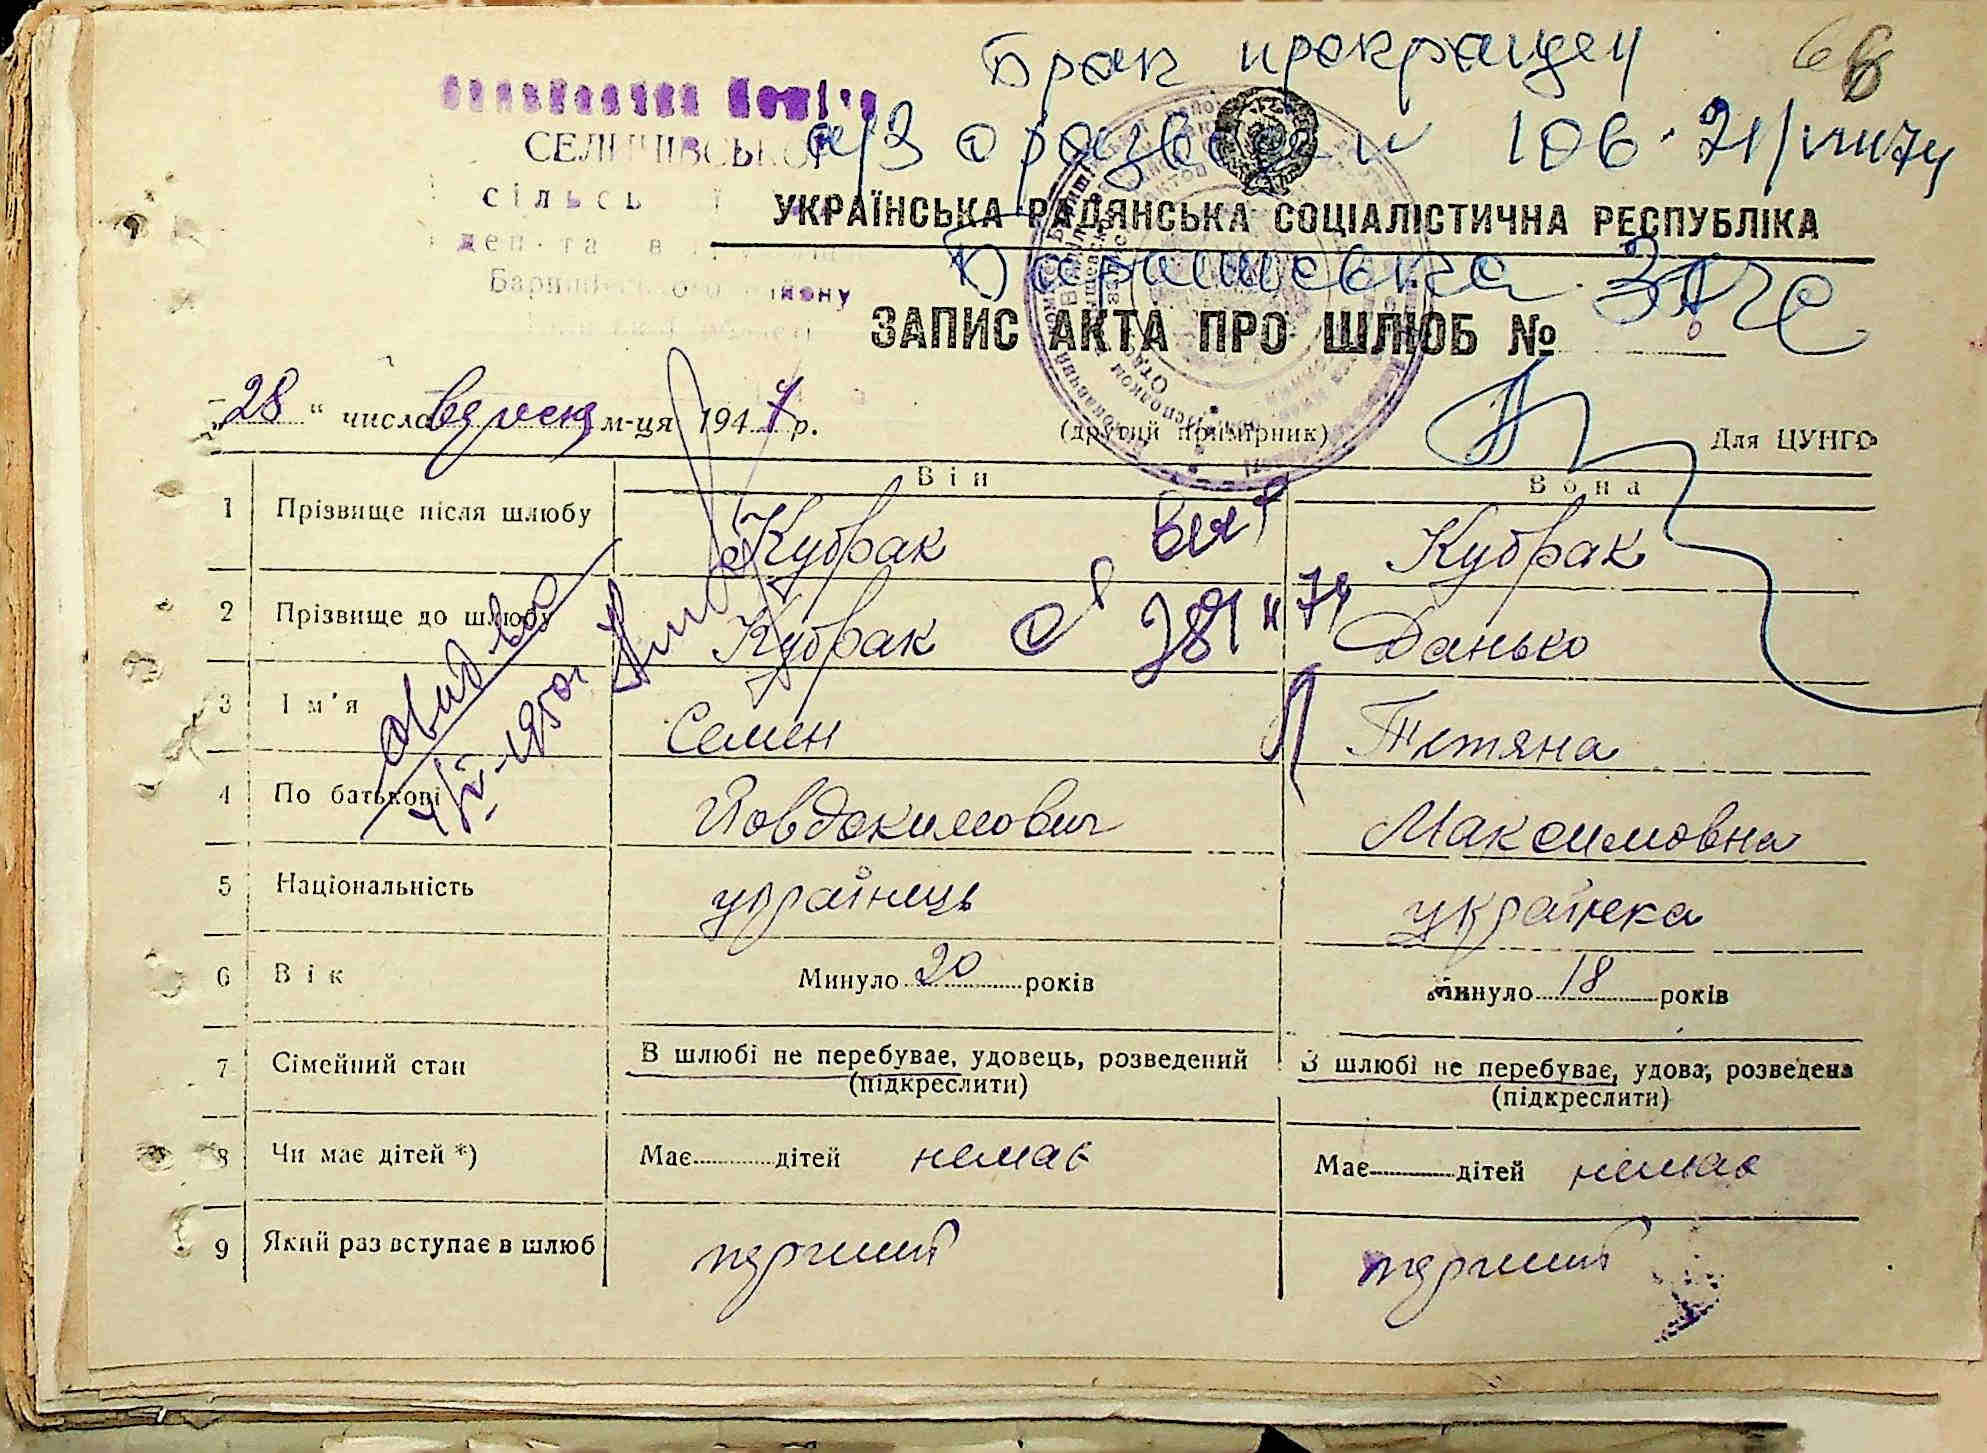 Брак прекращен 68
а/з о разводе № 106. 21/VIII 74
Виконавчий Комітет
СЕЛИЩІВСЬКОЇ
сільської
депутатів
Баришівського району
УКРАЇНСЬКА РАДЯНСЬКА СОЦІАЛІСТИЧНА РЕСПУБЛІКА
Баришевское ЗАГС
ЗАПИС АКТА ПРО ШЛЮБ №
„28“ число вересня м-ця 1947 р.
(другий примірник)
Для ЦУНГО
Він Вона
1 Прізвище після шлюбу Кубрак Кубрак
2 Прізвище до шлюбу Кубрак Данько
3 Ім'я Семен Тетяна
4 По батькові Йовдокимович Максимовна
5 Національність українець українка
6 Вік Минуло 20 років Минуло 18 років
7 Сімейний стан В шлюбі не перебуває, удовець, розведений (підкреслити) В шлюбі не перебуває, удова, розведена (підкреслити)
8 Чи має дітей *) Має дітей немає Має дітей немає
9 Який раз вступає в шлюб перший перший